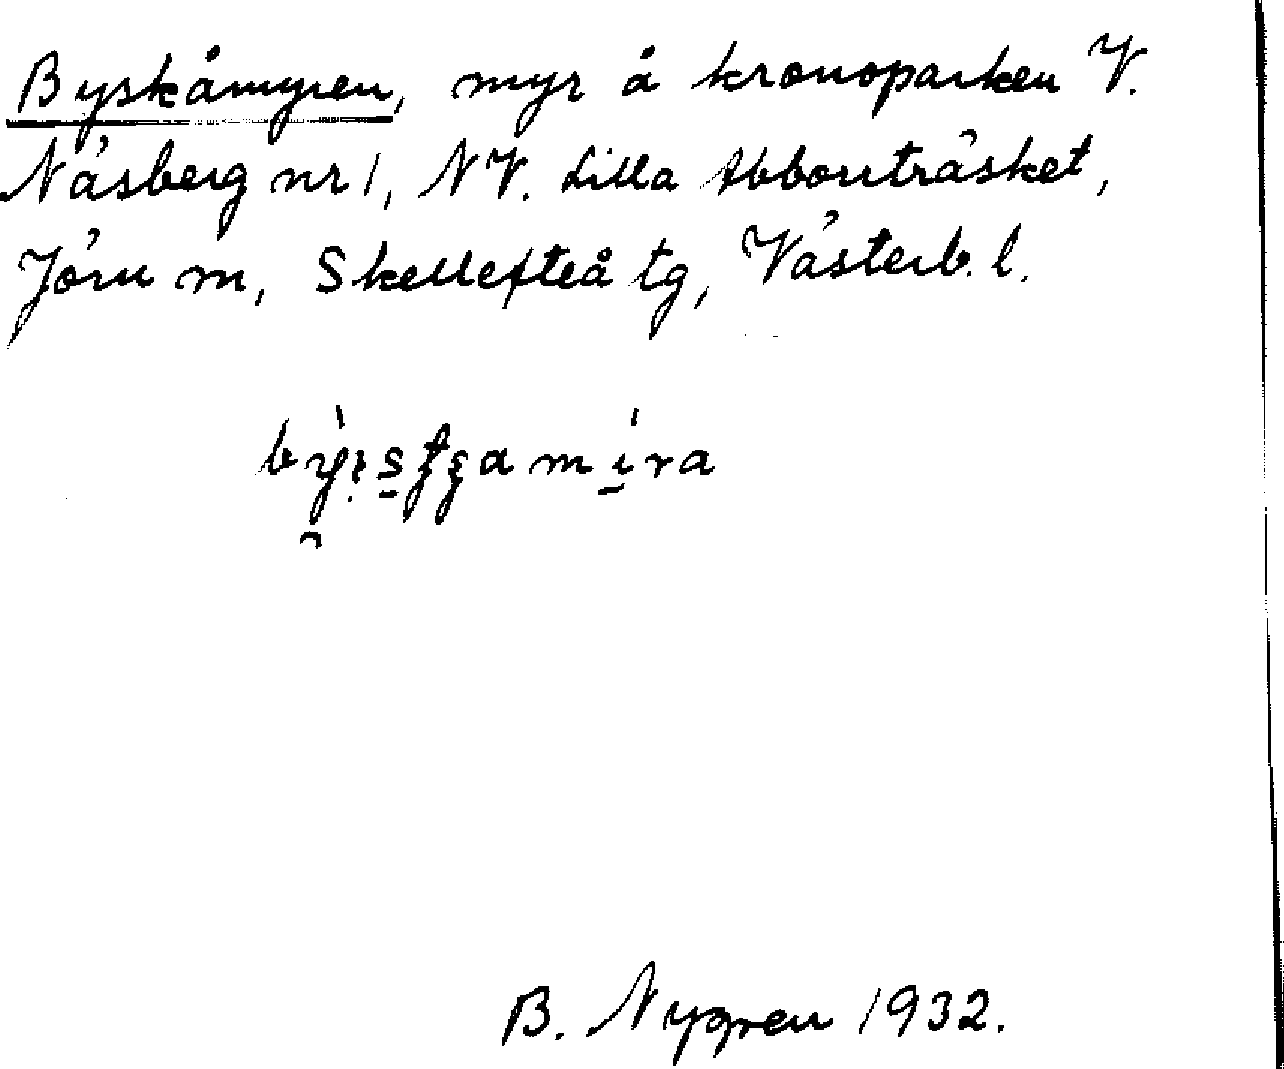 Byskåmyren, myr å kronoparken V.
Näsberg nr 1, NV. Lilla Abborrträsket,
Jörn sn, Skellefteå tg, Västerb. l.
B. Nygren 1932.